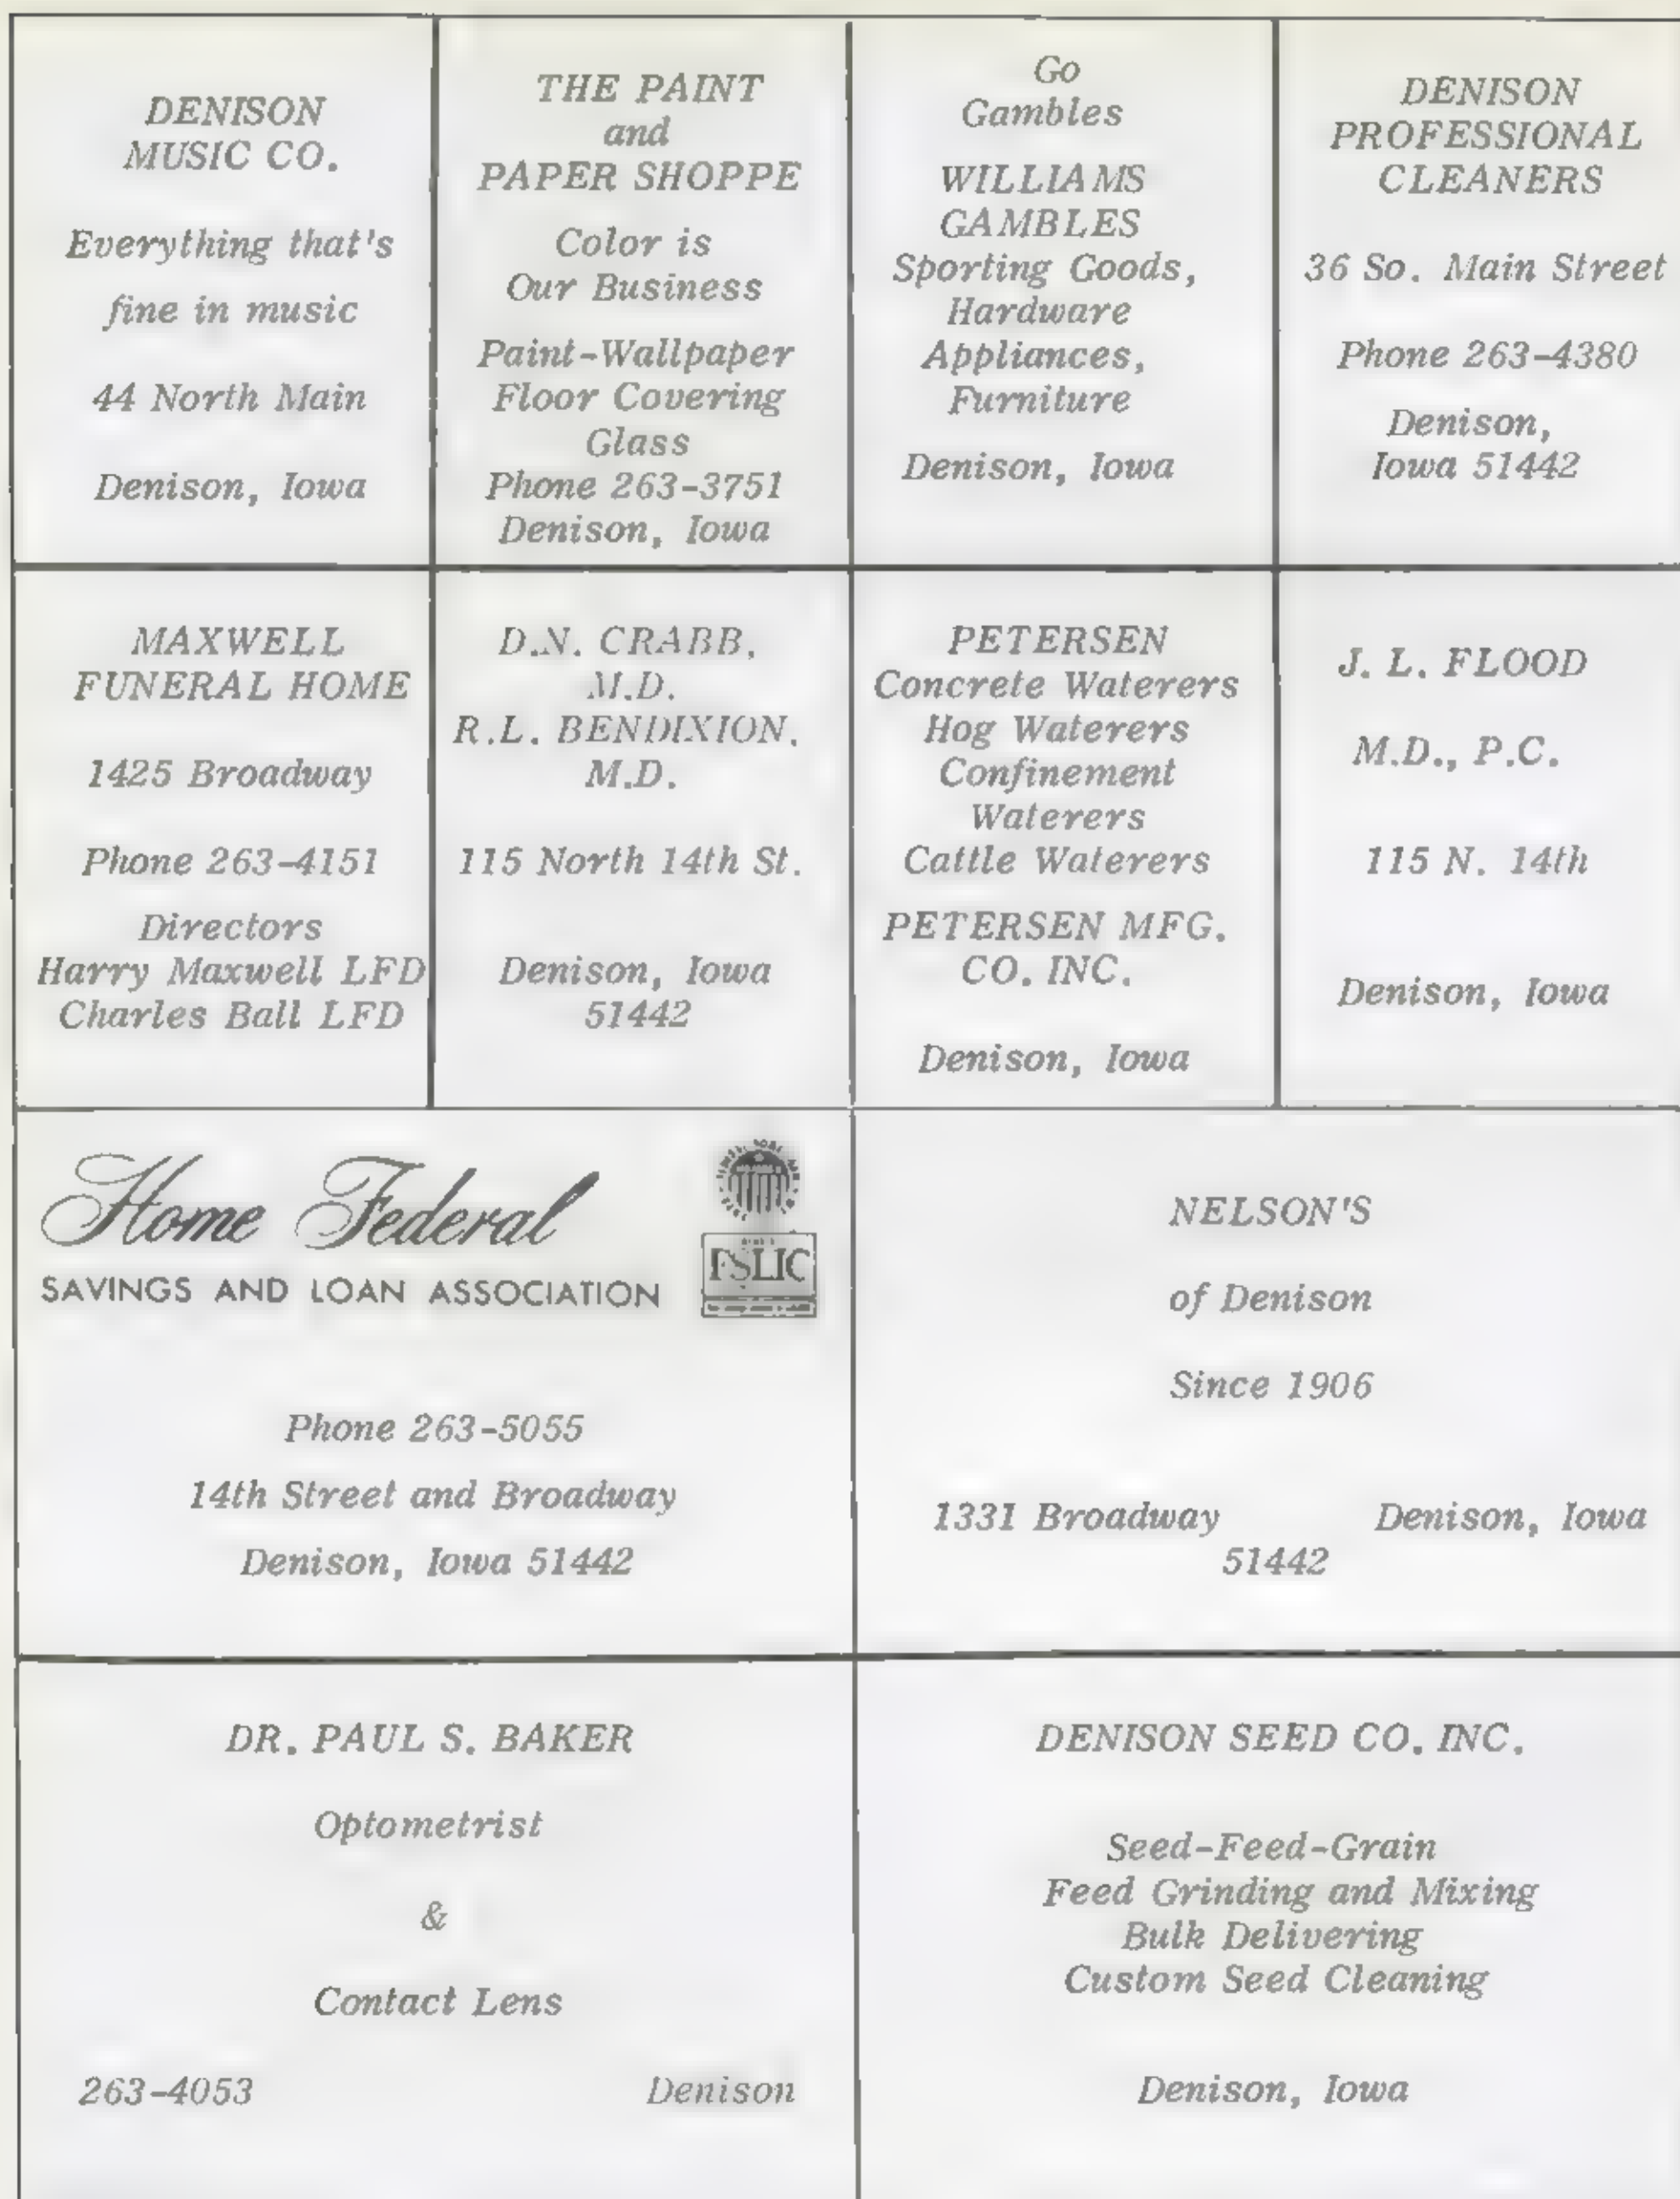 DENISON
MUSIC CO.
Everything that's
fine in music
44 North Main
Denison, Iowa
THE PAINT
and
PAPER SHOPPE
Color is
Our Business
Paint-Wallpaper
Floor Covering
Glass
Phone 263-3751
Denison, Iowa
Go
Gambles
WILLIAMS
GAMBLES
Sporting Goods,
Hardware
Appliances,
Furniture
Denison, Iowa
DENISON
PROFESSIONAL
CLEANERS
36 So. Main Street
Phone 263-4380
Denison,
Iowa 51442
MAXWELL
FUNERAL HOME
1425 Broadway
Phone 263-4151
Directors
Harry Maxwell LFD
Charles Ball LFD
D.N. CRABB,
M.D.
R.L. BENDIXION,
M.D.
115 North 14th St.
Denison, Iowa
51442
PETERSEN
Concrete Waterers
Hog Waterers
Confinement
Waterers
Cattle Waterers
PETERSEN MFG.
CO. INC.
Denison, Iowa
J. L. FLOOD
M.D., P.C.
115 N. 14th
Denison, Iowa
Home Federal
SAVINGS AND LOAN ASSOCIATION
FSLIC
Phone 263-5055
14th Street and Broadway
Denison, Iowa 51442
NELSON'S
of Denison
Since 1906
1331 Broadway Denison, Iowa
51442
DR. PAUL S. BAKER
Optometrist
&
Contact Lens
263-4053 Denison
DENISON SEED CO. INC.
Seed-Feed-Grain
Feed Grinding and Mixing
Bulk Delivering
Custom Seed Cleaning
Denison, Iowa